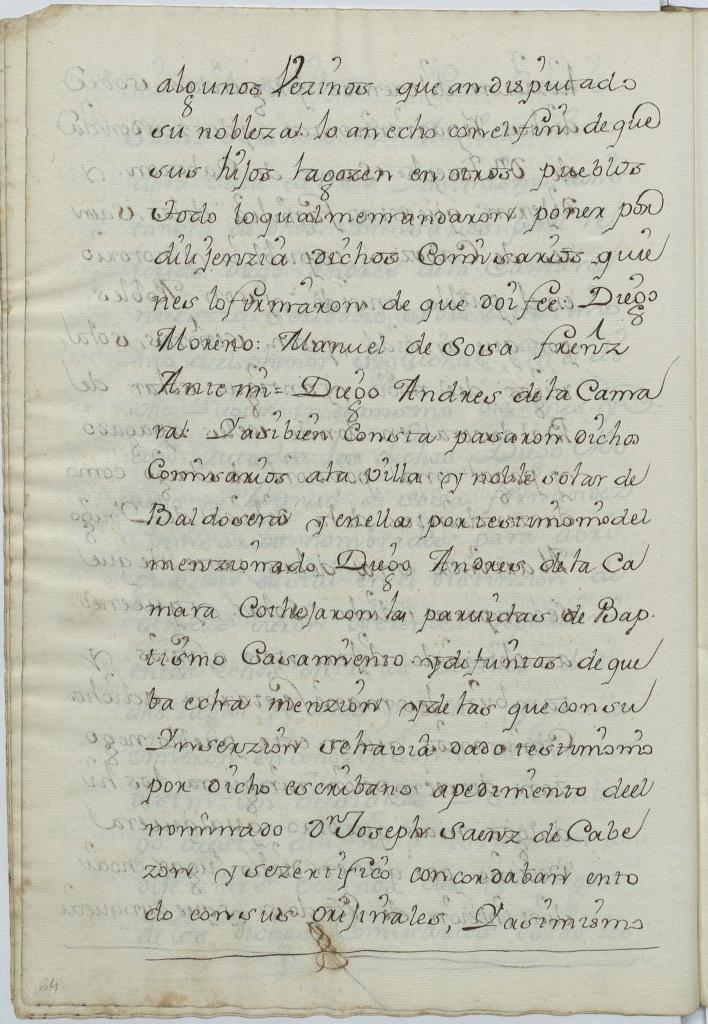 algunos Vezinos que an disputado
su nobleza: lo an echo con el fin de que
sus hijos la gozen en otros pueblos
todo lo qual me mandaron poner por
dilijenzia dichos Comisarios quie
nes lo firmaron de que doi fee: Diego
Moreno: Manuel de Sosa frenz
Ante mi = Diego Andres de la Cama
ra: Y asi bien Consta pasaron dichos
Comisarios a la villa y noble solar de
Baldosera y en ella por testimonio del
menzionado Diego Andres de la Ca
mara Cothejaron las partidas de Bap
tismo Casamiento y difuntos de que
ba echa menzion y de las que con su
Ynserzion se havia dado testimonio
por dicho escribano a pedimento de el
nominado Dn Joseph Saenz de Cabe
zon y se zertifico concordaban en to
do con sus orijinales, Y asimismo
64